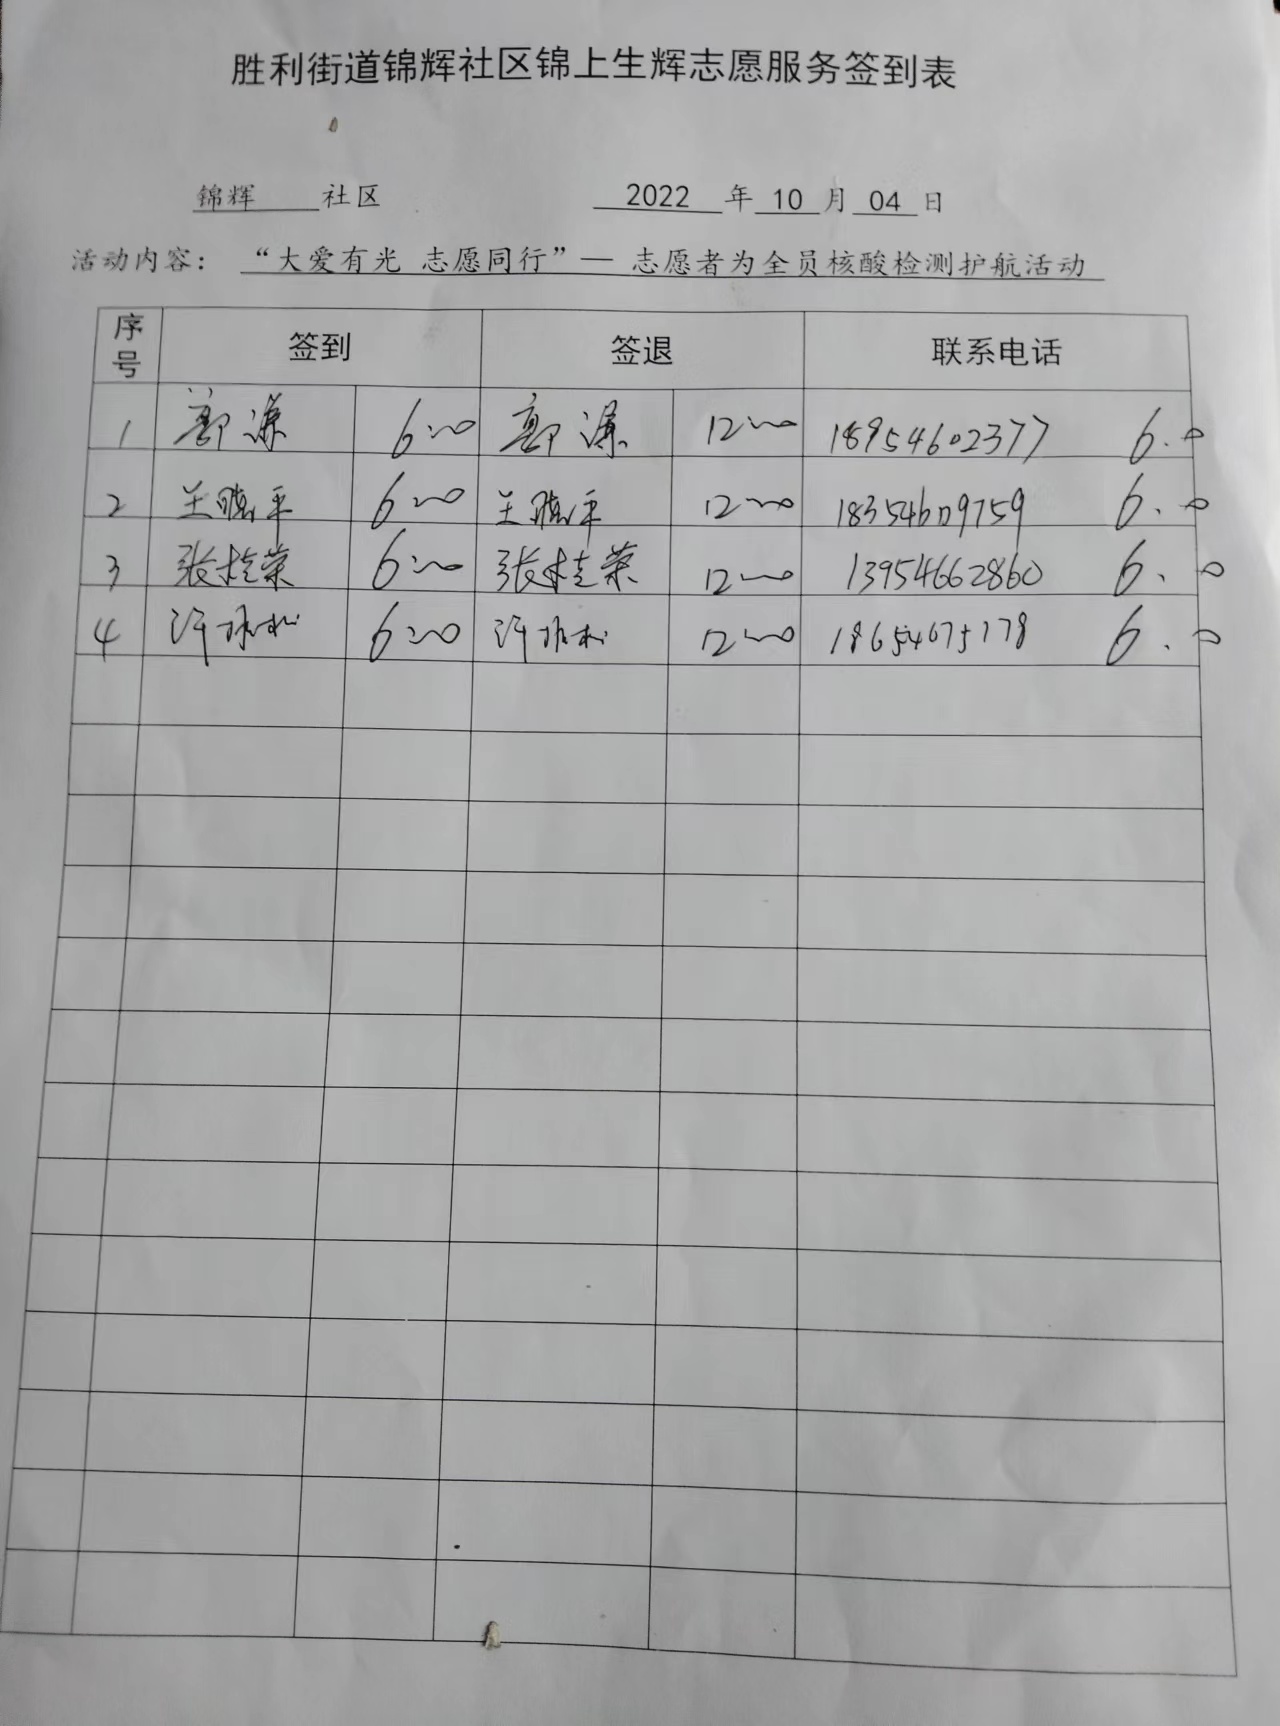 胜利街道锦辉社区锦上生辉志愿服务签到表
锦辉 社区 2022 年 10 月 04 日
活动内容: “大爱有光 志愿同行”— 志愿者为全员核酸检测护航活动
序号 签到 签退 联系电话
1 6:00 12:00 18954602377 6.0
2 王晓平 6:00 王晓平 12:00 6.0
3 张桂荣 6:00 张桂荣 12:00 13954662860 6.0
4 许 6:00 许 12:00 18654675178 6.0